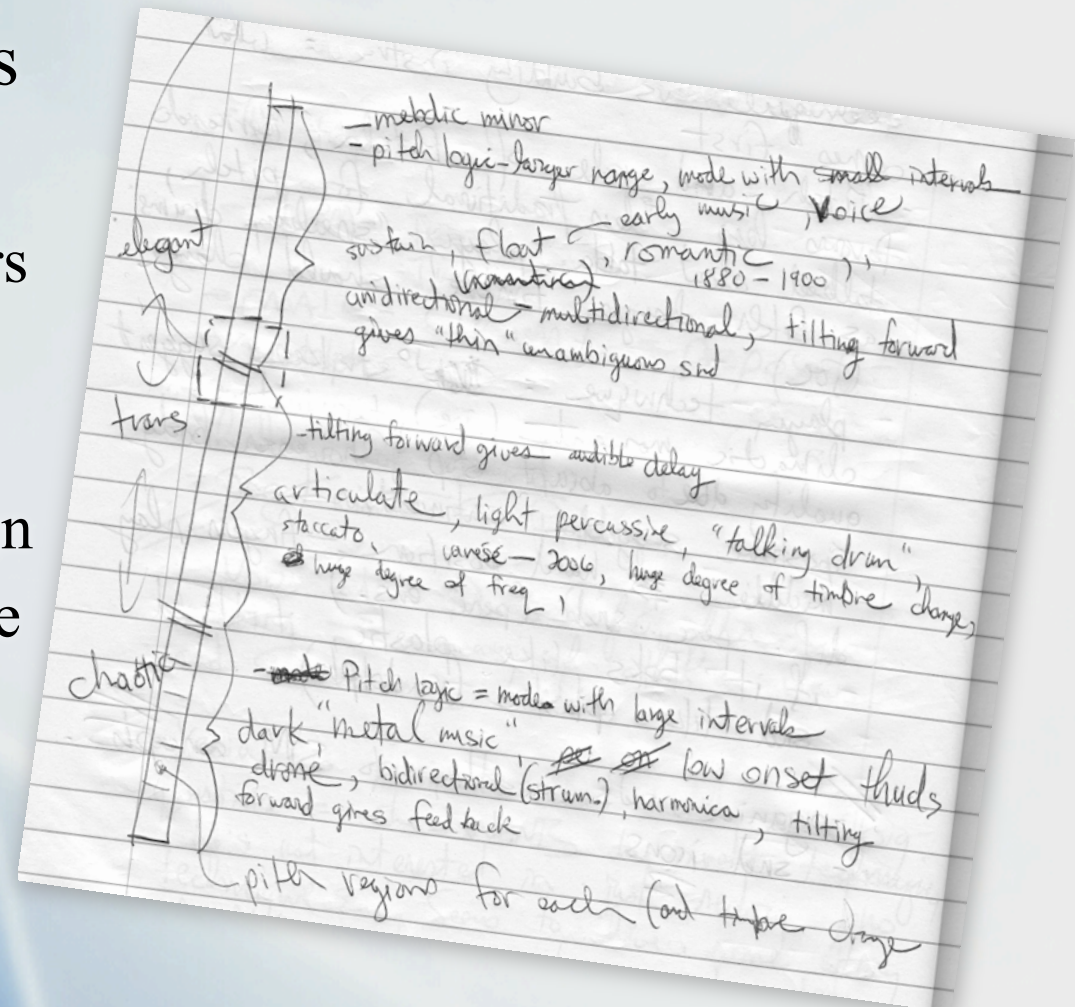 s
rs
n
e
– melodic minor
– pitch logic – larger range, mode with small intervals
– early music, Voice
elegant
sustain, float, romantic, ,
1880 – 1900
unidirectional – multidirectional, tilting forward
gives "thin" unambiguous snd
trans
– tilting forward gives audible delay
articulate, light percussive, "talking drum",
staccato, varèse – 2006, huge degree of timbre change,
huge degree of freq,
chaotic
– Pitch logic = mode with large intervals
dark, "metal music", low onset thuds
drone, bidirectional (strum.), harmonica, tilting
forward gives feedback
pitch regions for each (and timbre change